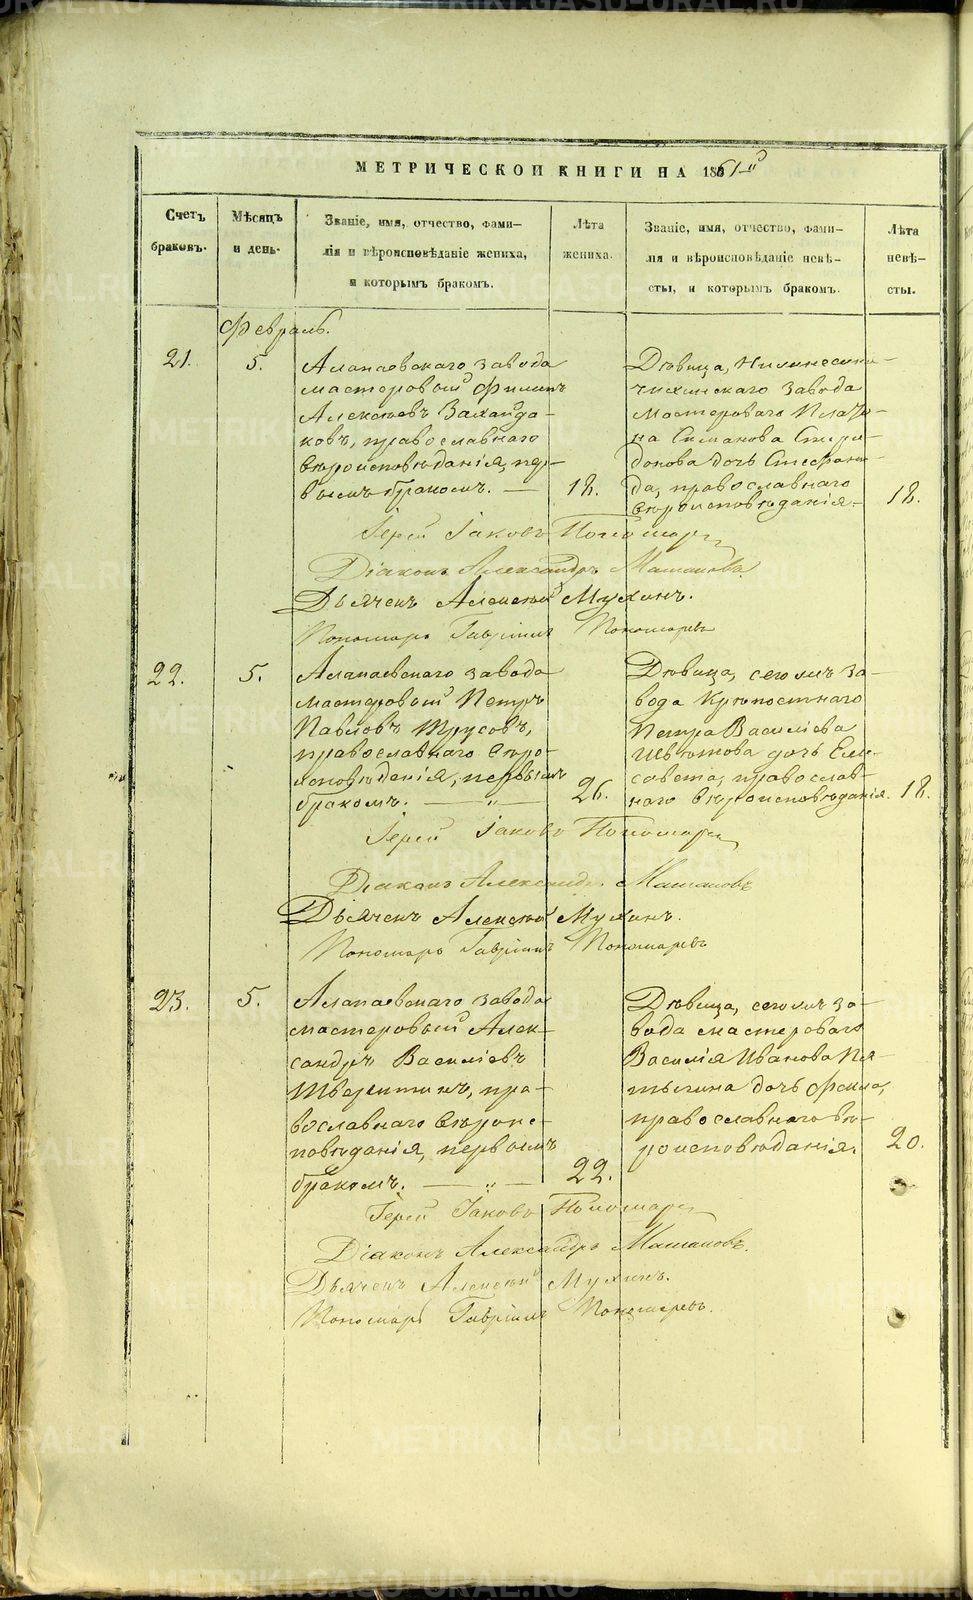 МЕТРИЧЕСКОЙ КНИГИ НА 1861й
Счетъ браковъ.
Мѣсяцъ и день.
Званіе, имя, отчество, фами-
лія и вѣроисповѣданіе жениха,
и которымъ бракомъ.
Лѣта жениха.
Званіе, имя, отчество, фами-
лія и вѣроисповѣданіе невѣ-
сты, и которымъ бракомъ.
Лѣта невѣ-
сты.
Февраль.
21.
5.
Алапаевскаго завода
мастеровый Филипъ
Алексѣевъ
ковъ, православнаго
вѣроисповѣданія, пер-
вымъ бракомъ. —
18.
Дѣвица,
завода
мастероваго Плато-
на Симанова Спири-
донова дочь Стефани-
да, православнаго
вѣроисповѣданія.
18.
Іерей Іаковъ Пономаревъ
Діаконъ Александръ
Дьячекъ Алексѣй Мухинъ.
Пономарь Гавріилъ Пономаревъ
22.
5.
Алапаевскаго завода
мастеровый Петръ
Павловъ Трусовъ,
православнаго вѣро-
исповѣданія, первымъ
бракомъ. — „ —
26.
Дѣвица, сегожъ за-
вода крѣпостнаго
Петра Василіева
дочь Ели-
савета, православ-
наго вѣроисповѣданія.
18.
Іерей Іаковъ Пономаревъ
Діаконъ Александръ
Дьячекъ Алексѣй Мухинъ.
Пономарь Гавріилъ Пономаревъ
23.
5.
Алапаевскаго завода
мастеровый Алек-
сандръ Василіевъ
Тверитинъ, пра-
вославнаго вѣроис-
повѣданія, первымъ
бракомъ. — „ —
22.
Дѣвица, сегожъ за-
вода мастероваго
Василія Иванова Пя-
тыгина дочь Фекла,
православнаго вѣ-
роисповѣданія.
20.
Іерей Іаковъ Пономаревъ
Діаконъ Александръ
Дьячекъ Алексѣй Мухинъ.
Пономарь Гавріилъ Пономаревъ.
METRIKI.GASO-URAL.RU